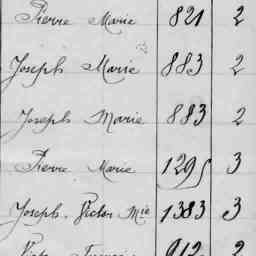 Pierre Marie 821 2
Joseph Marie 883 2
Joseph Marie 883 2
Pierre Marie 1295 3
Joseph. Victor Mie 1383 3
912 2